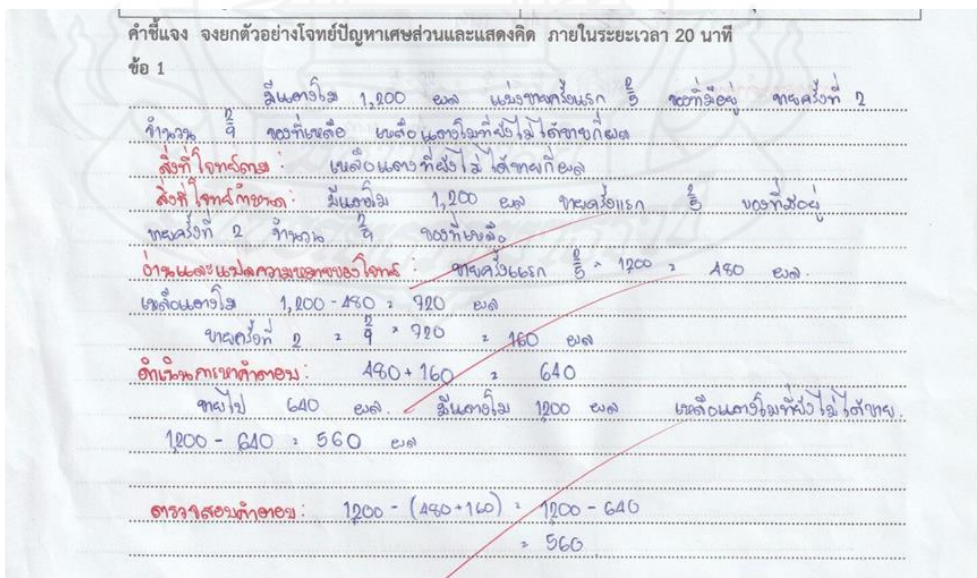 คำชี้แจง จงยกตัวอย่างโจทย์ปัญหาเศษส่วนและแสดงคิด ภายในระยะเวลา 20 นาที
ข้อ 1
มีแตงโม 1,200 ผล แบ่งขายครั้งแรก 2/5 ของที่มีอยู่ ขายครั้งที่ 2
จำนวน 2/9 ของที่เหลือ เหลือแตงโมที่ยังไม่ได้ขายกี่ผล
สิ่งที่โจทย์ถาม : เหลือแตงที่ยังไม่ได้ขายกี่ผล
สิ่งที่โจทย์กำหนด : มีแตงโม 1,200 ผล ขายครั้งแรก 2/5 ของที่มีอยู่
ขายครั้งที่ 2 จำนวน 2/9 ของที่เหลือ
อ่านและแปลความหมายของโจทย์ : ขายครั้งแรก 2/5 × 1200 = 480 ผล.
เหลือแตงโม 1,200 - 480 = 720 ผล
ขายครั้งที่ 2 = 2/9 × 720 = 160 ผล
ดำเนินการหาคำตอบ : 480 + 160 = 640
ขายไป 640 ผล. มีแตงโม 1200 ผล เหลือแตงโมที่ยังไม่ได้ขาย.
1,200 - 640 = 560 ผล
ตรวจสอบคำตอบ : 1,200 - (480+160) = 1,200 - 640
= 560